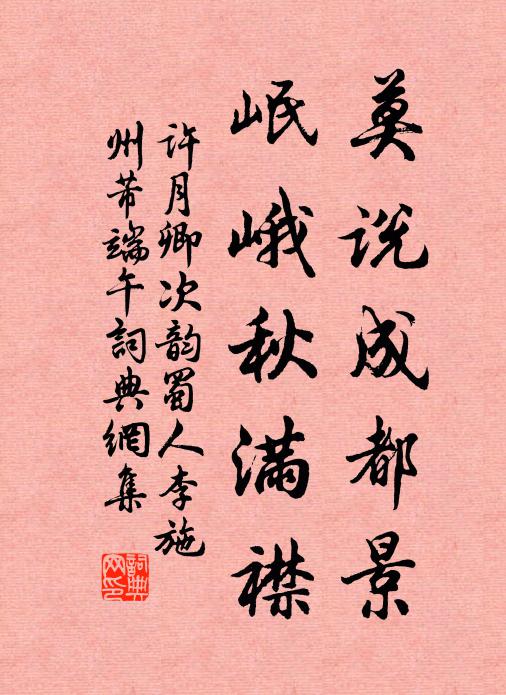 莫说成都景
岷峨秋满襟
许月卿次韵蜀人李施
州芾端午詞典網集
詞典网印